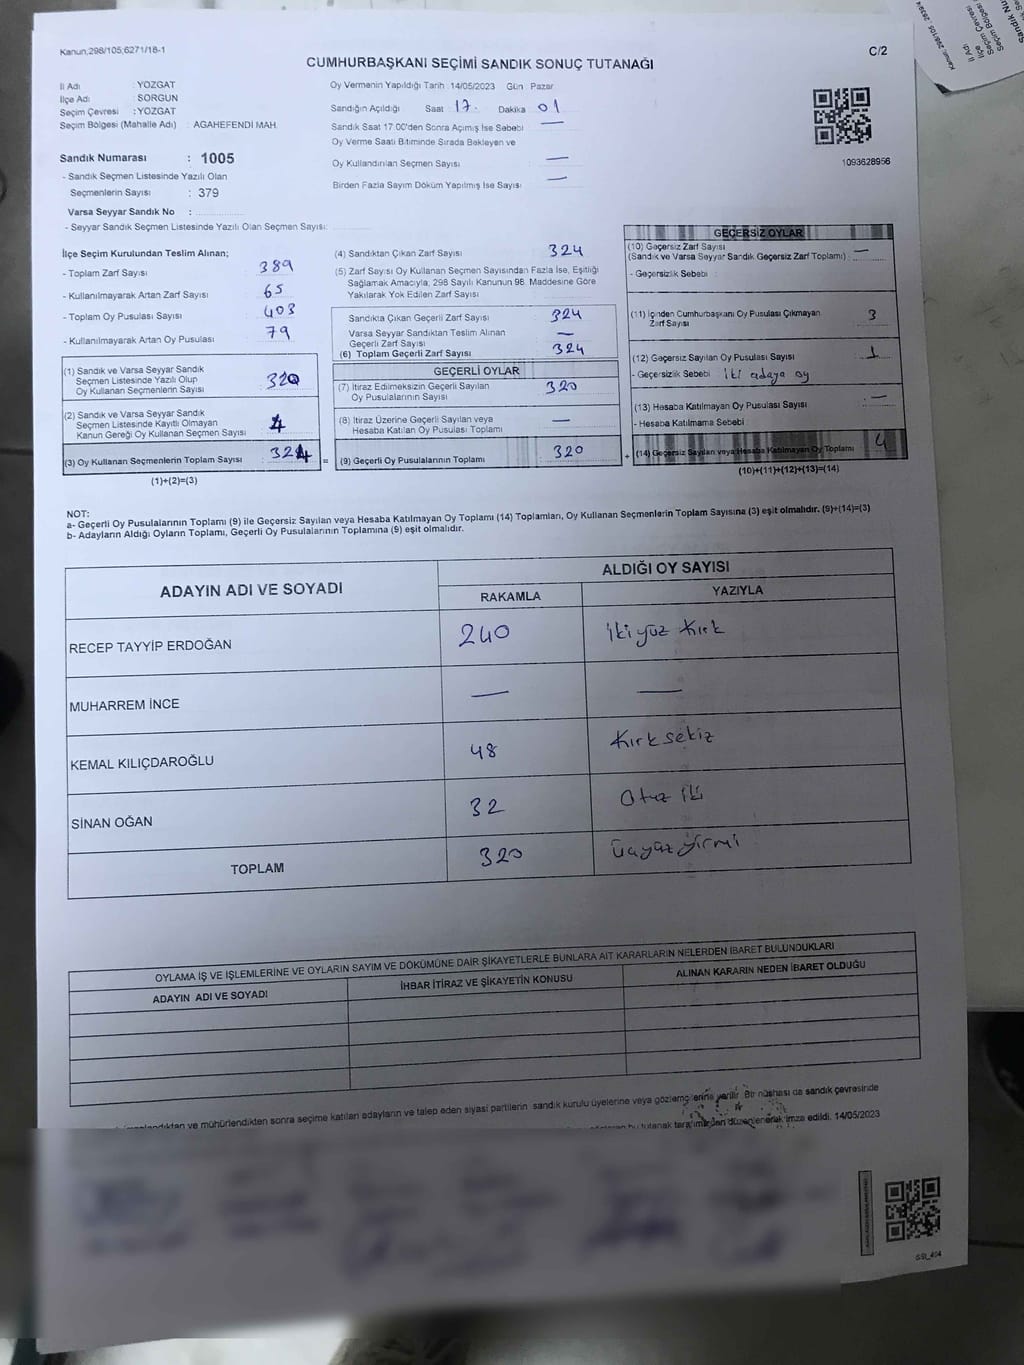 Kanun,298/105;6271/18-1
C/2
CUMHURBAŞKANI SEÇİMİ SANDIK SONUÇ TUTANAĞI
İl Adı : YOZGAT
İlçe Adı : SORGUN
Seçim Çevresi : YOZGAT
Seçim Bölgesi (Mahalle Adı) : AGAHEFENDİ MAH.
Sandık Numarası : 1005
- Sandık Seçmen Listesinde Yazılı Olan
Seçmenlerin Sayısı : 379
Varsa Seyyar Sandık No :
- Seyyar Sandık Seçmen Listesinde Yazılı Olan Seçmen Sayısı:
Oy Vermenin Yapıldığı Tarih 14/05/2023 Gün Pazar
Sandığın Açıldığı Saat 17. Dakika 01
Sandık Saat 17:00'den Sonra Açımış İse Sebebi —
Oy Verme Saati Bitiminde Sırada Bekleyen ve
Oy Kullandırılan Seçmen Sayısı —
Birden Fazla Sayım Döküm Yapılmış İse Sayısı —
1093628956
İlçe Seçim Kurulundan Teslim Alınan;
- Toplam Zarf Sayısı 389
- Kullanılmayarak Artan Zarf Sayısı 65
- Toplam Oy Pusulası Sayısı 403
- Kullanılmayarak Artan Oy Pusulası 79
(1) Sandık ve Varsa Seyyar Sandık
Seçmen Listesinde Yazılı Olup
Oy Kullanan Seçmenlerin Sayısı 320
(2) Sandık ve Varsa Seyyar Sandık
Seçmen Listesinde Kayıtlı Olmayan
Kanun Gereği Oy Kullanan Seçmen Sayısı 4
(3) Oy Kullanan Seçmenlerin Toplam Sayısı 324 =
(1)+(2)=(3)
(4) Sandıktan Çıkan Zarf Sayısı 324
(5) Zarf Sayısı Oy Kullanan Seçmen Sayısından Fazla İse, Eşitliği
Sağlamak Amacıyla, 298 Sayılı Kanunun 98. Maddesine Göre
Yakılarak Yok Edilen Zarf Sayısı
Sandıkta Çıkan Geçerli Zarf Sayısı 324
Varsa Seyyar Sandıktan Teslim Alınan
Geçerli Zarf Sayısı —
(6) Toplam Geçerli Zarf Sayısı 324
GEÇERLİ OYLAR
(7) İtiraz Edilmeksizin Geçerli Sayılan
Oy Pusulalarının Sayısı 320
(8) İtiraz Üzerine Geçerli Sayılan veya
Hesaba Katılan Oy Pusulası Toplamı —
(9) Geçerli Oy Pusulalarının Toplamı 320 +
GEÇERSİZ OYLAR
(10) Geçersiz Zarf Sayısı
(Sandık ve Varsa Seyyar Sandık Geçersiz Zarf Toplamı) —
- Geçersizlik Sebebi :
(11) İçinden Cumhurbaşkanı Oy Pusulası Çıkmayan
Zarf Sayısı 3
(12) Geçersiz Sayılan Oy Pusulası Sayısı 1
- Geçersizlik Sebebi iki adaya oy
(13) Hesaba Katılmayan Oy Pusulası Sayısı —
- Hesaba Katılmama Sebebi
(14) Geçersiz Sayılan veya Hesaba Katılmayan Oy Toplamı 4
(10)+(11)+(12)+(13)=(14)
NOT:
a- Geçerli Oy Pusulalarının Toplamı (9) ile Geçersiz Sayılan veya Hesaba Katılmayan Oy Toplamı (14) Toplamları, Oy Kullanan Seçmenlerin Toplam Sayısına (3) eşit olmalıdır. (9)+(14)=(3)
b- Adayların Aldığı Oyların Toplamı, Geçerli Oy Pusulalarının Toplamına (9) eşit olmalıdır.
ADAYIN ADI VE SOYADI
ALDIĞI OY SAYISI
RAKAMLA YAZIYLA
RECEP TAYYİP ERDOĞAN 240 iki yüz kırk
MUHARREM İNCE — —
KEMAL KILIÇDAROĞLU 48 Kırk sekiz
SİNAN OĞAN 32 Otuz iki
TOPLAM 320 üçyüz yirmi
OYLAMA İŞ VE İŞLEMLERİNE VE OYLARIN SAYIM VE DÖKÜMÜNE DAİR ŞİKAYETLERLE BUNLARA AİT KARARLARIN NELERDEN İBARET BULUNDUKLARI
ADAYIN ADI VE SOYADI İHBAR İTİRAZ VE ŞİKAYETİN KONUSU ALINAN KARARIN NEDEN İBARET OLDUĞU
ve mühürlendikten sonra seçime katılan adayların ve talep eden siyasi partilerin sandık kurulu üyelerine veya gözlemcilerine verilir. Bir nüshası da sandık çevresinde
bu tutanak tarafımızdan düzenlenerek imza edildi. 14/05/2023